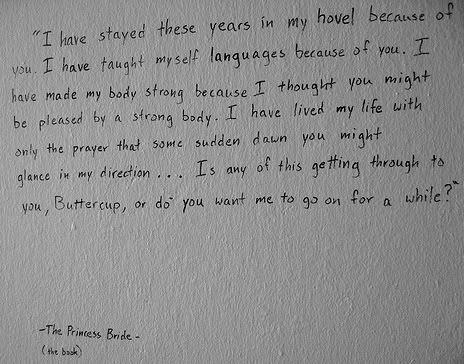 "I have stayed these years in my hovel because of
you. I have taught myself languages because of you. I
have made my body strong because I thought you might
be pleased by a strong body. I have lived my life with
only the prayer that some sudden dawn you might
glance in my direction... Is any of this getting through to
you, Buttercup, or do you want me to go on for a while?"
-The Princess Bride-
(the book)